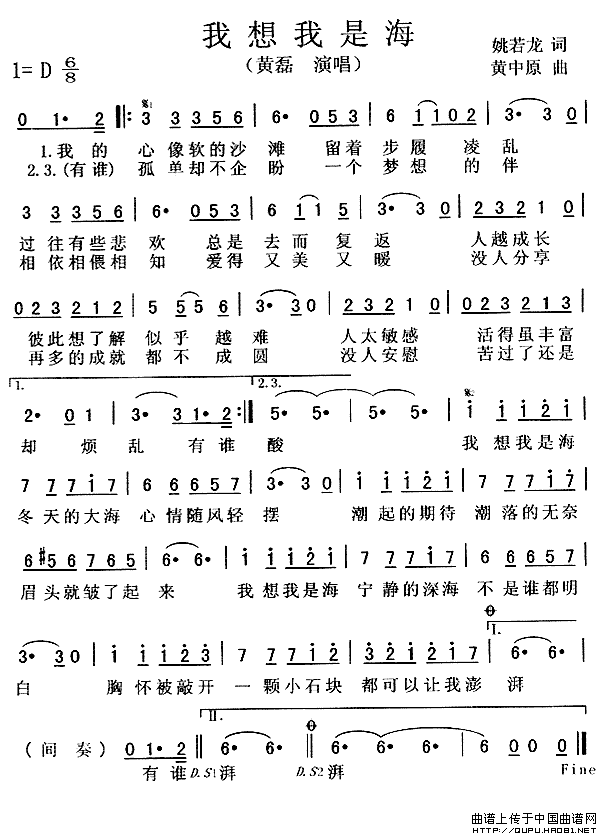 我想我是海
1=D 6/8
（黄磊 演唱）
姚若龙 词
黄中原 曲
0 1• 2 ‖: 3 3 3 5 6 | 6• 0 5 3 | 6 1 1 0 2 | 3• 3 0 |
1.我 的 心 像软的沙 滩 留着 步履 凌乱
2.3.(有谁) 孤 单却不企 盼 一个 梦想 的伴
3 3 3 5 6 | 6• 0 5 3 | 6 1 1 5 | 3• 3 0 | 0 2 3 2 1 0 |
过 往有些悲 欢 总是 去而 复返 人越成长
相 依相偎相 知 爱得 又美 又暖 没人分享
0 2 3 2 1 2 | 5 5 5 6 | 3• 3 0 | 0 2 3 2 1 0 | 0 2 3 2 1 2 |
彼此想了解 似乎 越难 人太敏感 活得虽丰富
再多的成就 都不 成圆 没人安慰 苦过了还是
1.
2.3.
2• 0 1 | 3• 3 1• 2 :‖ 5• 5• | 5• 5• | 1 1 1 2 1 |
却 烦 乱 有谁 酸 我 想我是海
7 7 7 1 7 | 6 6 6 5 7 | 3• 3 0 | 1 1 1 2 1 | 7 7 7 1 7 |
冬 天的大海 心 情随风轻 摆 潮 起的期待 潮 落的无奈
6 #5 6 7 6 5 | 6• 6• | 1 1 1 2 1 | 7 7 7 1 7 | 6 6 6 5 7 |
眉头就皱了起 来 我 想我是海 宁 静的深海 不 是谁都明
I.
3• 3 0 | 1 1 1 2 3 | 7 7 7 1 2 | 1 2 1 7 1 | 6• 6• |
白 胸 怀被敲开 一 颗小石块 都可以让我澎 湃
II.
（间奏） 0 1• 2 ‖ 6• 6• ‖ 6• 6• | 6 0 0 0 ‖
有谁 D.S1 湃 D.S2 湃 Fine
曲谱上传于中国曲谱网
HTTP://WWW.QUPU.HAO81.NET